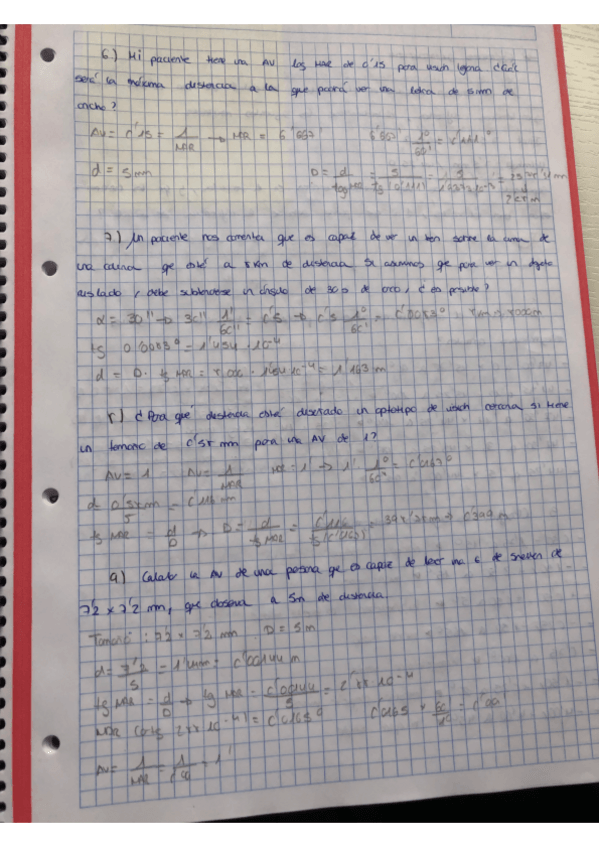 6.) Mi paciente tiene una AV log MAR de 0'15 para visión lejana ¿Cuál
será la máxima distancia a la que podrá ver una letra de 5mm de
ancho?
AV = 0'15 = 1/MAR → MAR = 6'667' 6'667' · 1º/60' = 0'111º
d = 5 mm D = d/tg MAR = 5/tg(0'111)
7.) Un paciente nos comenta que es capaz de ver un tren sobre la cima de
una colina que está a 8km de distancia. Si asumimos que para ver un objeto
aislado, debe subtenderse un ángulo de 30s de arco, ¿es posible?
α = 30'' → 30'' 1'/60'' = 0'5 → 0'5 1º/60' = 0'0083º 8km = 8000m
tg 0'0083º = 1'454 · 10⁻⁴
d = D · tg MAR = 8.000 · 1'454·10⁻⁴ = 1'163 m
8.) ¿Para qué distancia está diseñado un optotipo de visión cercana si tiene
un tamaño de 0'58 mm para una AV de 1?
AV = 1 AV = 1/MAR MAR = 1' → 1' · 1º/60' = 0'0167º
d = 0'58mm/5 = 0'116 mm
tg MAR = d/D → D = d/tg MAR = 0'116/tg(0'0167)
9.) Calcular la AV de una persona que es capaz de leer una E de Snellen de
7'2 x 7'2 mm, que observa a 5m de distancia.
Tamaño: 7'2 x 7'2 mm D = 5m
d = 7'2/5 = 1'44mm = 0'00144 m
tg MAR = d/D → tg MAR = 0'00144/5 = 2'88 · 10⁻⁴
MAR (arctg 2'88 · 10⁻⁴) = 0'0165º 0'0165 · 60'/1º = 0'99'
AV = 1/MAR = 1/0'99 = 1'